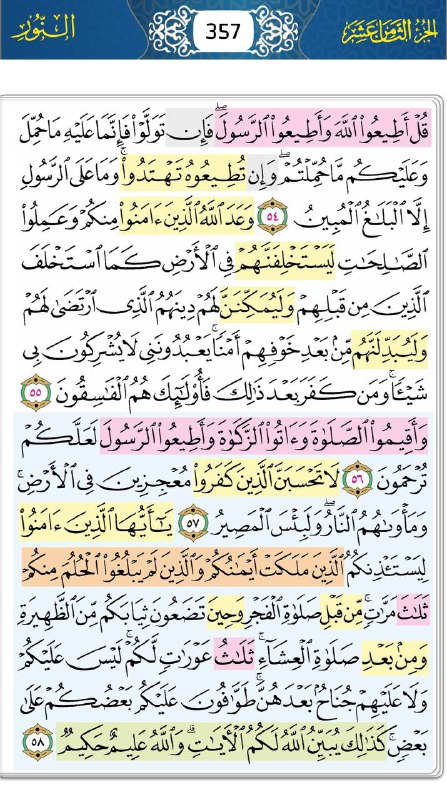 الجزء الثامن عشر 357 النور
قُلْ أَطِيعُوا۟ ٱللَّهَ وَأَطِيعُوا۟ ٱلرَّسُولَ ۖ فَإِن تَوَلَّوْا۟ فَإِنَّمَا عَلَيْهِ مَا حُمِّلَ
وَعَلَيْكُم مَّا حُمِّلْتُمْ ۖ وَإِن تُطِيعُوهُ تَهْتَدُوا۟ ۚ وَمَا عَلَى ٱلرَّسُولِ
إِلَّا ٱلْبَلَـٰغُ ٱلْمُبِينُ ٥٤ وَعَدَ ٱللَّهُ ٱلَّذِينَ ءَامَنُوا۟ مِنكُمْ وَعَمِلُوا۟
ٱلصَّـٰلِحَـٰتِ لَيَسْتَخْلِفَنَّهُمْ فِى ٱلْأَرْضِ كَمَا ٱسْتَخْلَفَ
ٱلَّذِينَ مِن قَبْلِهِمْ وَلَيُمَكِّنَنَّ لَهُمْ دِينَهُمُ ٱلَّذِى ٱرْتَضَىٰ لَهُمْ
وَلَيُبَدِّلَنَّهُم مِّنۢ بَعْدِ خَوْفِهِمْ أَمْنًا ۚ يَعْبُدُونَنِى لَا يُشْرِكُونَ بِى
شَيْـًٔا ۚ وَمَن كَفَرَ بَعْدَ ذَٰلِكَ فَأُو۟لَـٰٓئِكَ هُمُ ٱلْفَـٰسِقُونَ ٥٥
وَأَقِيمُوا۟ ٱلصَّلَوٰةَ وَءَاتُوا۟ ٱلزَّكَوٰةَ وَأَطِيعُوا۟ ٱلرَّسُولَ لَعَلَّكُمْ
تُرْحَمُونَ ٥٦ لَا تَحْسَبَنَّ ٱلَّذِينَ كَفَرُوا۟ مُعْجِزِينَ فِى ٱلْأَرْضِ ۚ
وَمَأْوَىٰهُمُ ٱلنَّارُ ۖ وَلَبِئْسَ ٱلْمَصِيرُ ٥٧ يَـٰٓأَيُّهَا ٱلَّذِينَ ءَامَنُوا۟
لِيَسْتَـْٔذِنكُمُ ٱلَّذِينَ مَلَكَتْ أَيْمَـٰنُكُمْ وَٱلَّذِينَ لَمْ يَبْلُغُوا۟ ٱلْحُلُمَ مِنكُمْ
ثَلَـٰثَ مَرَّٰتٍ ۚ مِّن قَبْلِ صَلَوٰةِ ٱلْفَجْرِ وَحِينَ تَضَعُونَ ثِيَابَكُم مِّنَ ٱلظَّهِيرَةِ
وَمِنۢ بَعْدِ صَلَوٰةِ ٱلْعِشَآءِ ۚ ثَلَـٰثُ عَوْرَٰتٍ لَّكُمْ ۚ لَيْسَ عَلَيْكُمْ
وَلَا عَلَيْهِمْ جُنَاحٌۢ بَعْدَهُنَّ ۚ طَوَّٰفُونَ عَلَيْكُم بَعْضُكُمْ عَلَىٰ
بَعْضٍ ۚ كَذَٰلِكَ يُبَيِّنُ ٱللَّهُ لَكُمُ ٱلْـَٔايَـٰتِ ۗ وَٱللَّهُ عَلِيمٌ حَكِيمٌ ٥٨